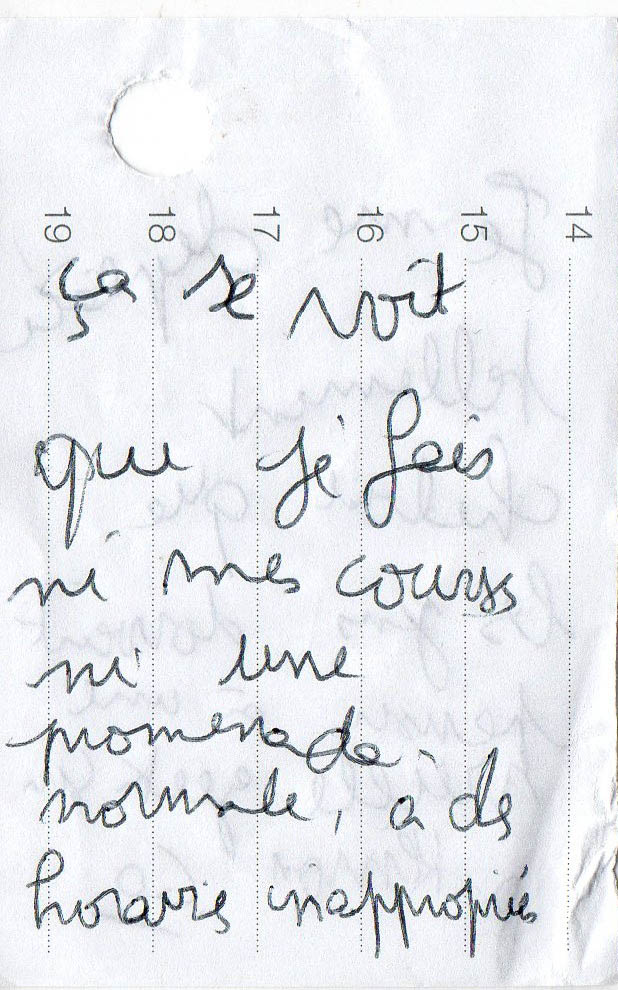 19 18 17 16 15 14
ça se voit
que je fais
ni mes courses
ni une
promenade
normale, à des
horaires inappropriés